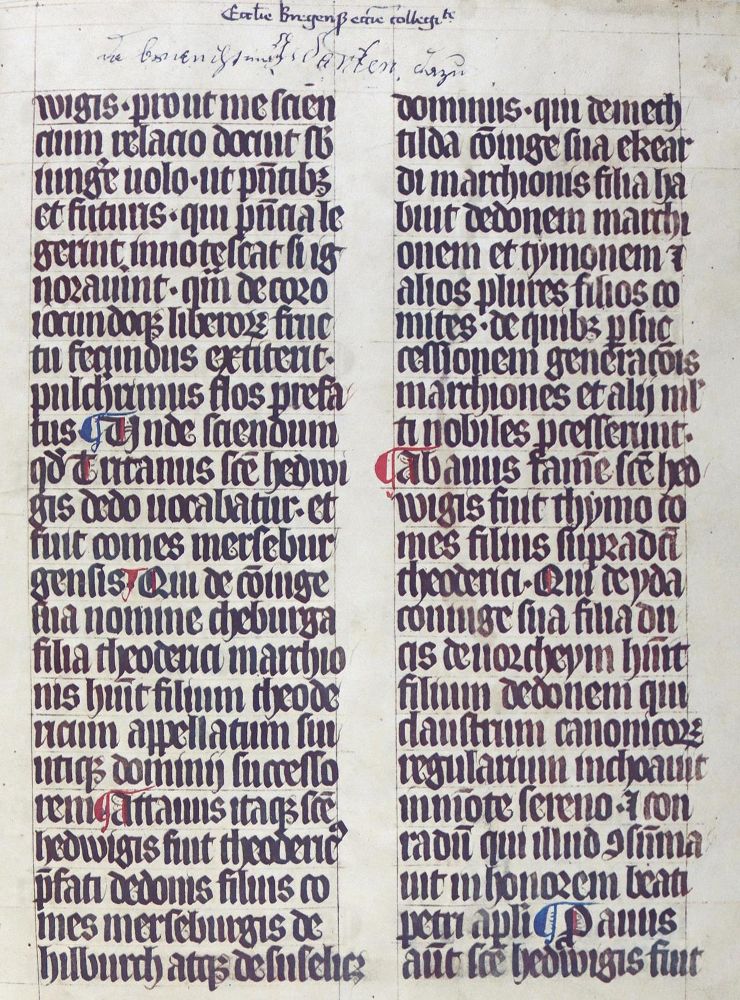 Ecclie Bregenß collegite
wigis · prout me scien
cium relacio docuit sb̄
iungere uolo · ut pn̄tibꝫ
et futuris · qui pn̄cia le
gerint innotescat si ig
norauint · qm̄ de coro
iocundoqꝫ liberoꝝ fruc
tu fecundus extiterit ·
pulcherrimus flos prefa
tus ¶ Inde sciendum
qd̄ Tritauus sc̄e hedwi
gis dedo uocabatur · et
fuit comes mersebur
gensis ¶ Qui de cōiuge
sua nomine theburga
filia theoderici marchio
nis hūit filium theode
ricum appellatum sui
utiqꝫ dominij successo
rem ¶ Attauus itaqꝫ sc̄e
hedwigis fuit theodericꝰ
p̄fati dedonis filius co
mes merseburgis de
hilburch atqꝫ de suselicz
dominus · qui de mech
tilda cōiuge sua ekear
di marchionis filia ha
buit dedonem marchi
onem et tymonem ⁊
alios plures filios co
mites · de quibꝫ ꝑ suc
cessionem generacōis
marchiones et alij ml̄
ti nobiles ꝓcesserunt ·
¶ Abauus tam̄e sc̄e hed
wigis fuit thymo co
mes filius supradc̄i
theoderici · Qui de yda
coniuge sua filia du
cis de norcheym hūit
filium dedonem qui
claustrum canonicoꝝ
regularium inchoauit
in mōte sereno · ⁊ con
radū qui illud ꝯsūma
uit in honorem beati
petri apl̄i ¶ Pauus
aūt sc̄e hedwigis fuit